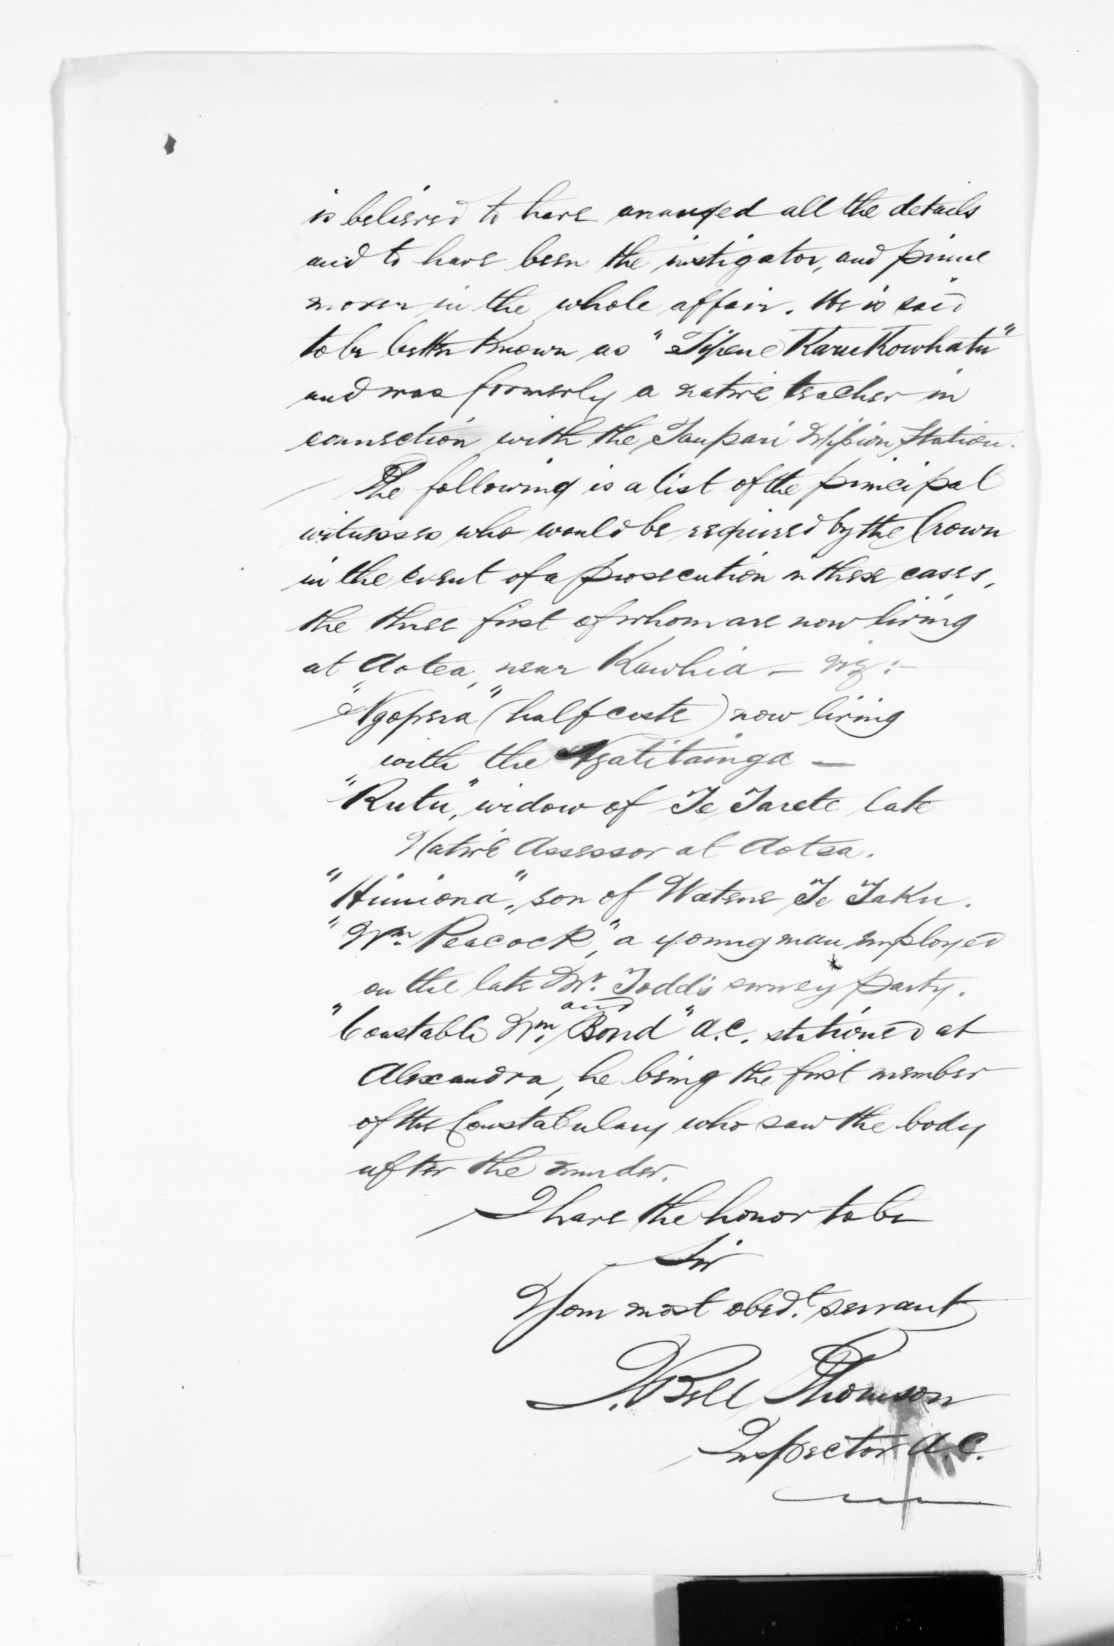 is believed to have arranged all the details
and to have been the instigator, and prime
mover in the whole affair. He is said
to be better known as "Tipene Karukowhatu"
and was formerly a native teacher in
connection with the Taupari Mission Station.
The following is a list of the principal
witnesses who would be required by the Crown
in the event of a prosecution in these cases,
the three first of whom are now living
at Aotea, near Kawhia - viz:-
"Ngopera" (half caste) now living
with the Ngatitainga -
"Rutu," widow of Te Tarete late
Native Assessor at Aotea.
"Himiona", son of Watene Te Taku.
"Wm. Peacock", a young man employed
on the late Mr. Todd's survey party.
and
"Constable Wm. Bond" A.C. stationed at
Alexandra, he being the first member
of the Constabulary who saw the body
after the murder.
I have the honor to be
Sir
Your most obedt. servant
Bell Thomson
Inspector A.C.